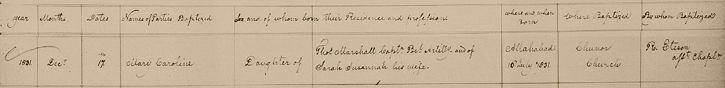 year Months Dates Names of Parties Baptized Son and of whom born their Residence and profession where and when Born Where Baptized By whom Baptized
1831. Decr. 17 Mary Caroline Daughter of
Thos. Marshall Captn. Artilly. and of
Sarah Susannah his wife.
Allahabad
10th July 1831.
Chunar
Church
R. Eteson
Chapln.